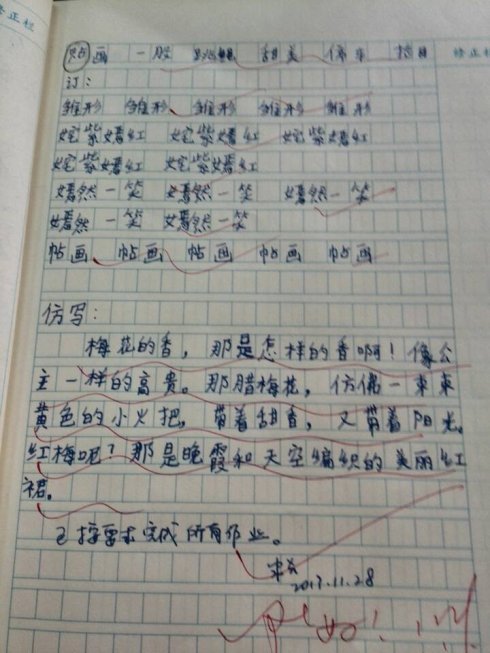 修正栏
贴画 一股 甜美 修正栏
订：
雏形 雏形 雏形 雏形 雏形
姹紫嫣红 姹紫嫣红 姹紫嫣红
姹紫嫣红 姹紫嫣红
嫣然一笑 嫣然一笑 嫣然一笑
嫣然一笑 嫣然一笑
帖画 帖画 帖画 帖画 帖画
仿写：
梅花的香，那是怎样的香啊！像公
主一样的高贵。那腊梅花，仿佛一束束
黄色的小火把，带着甜香，又带着阳光。
红梅呢？那是晚霞和天空编织的美丽红
裙。
已按要求完成所有作业。
2017.11.28